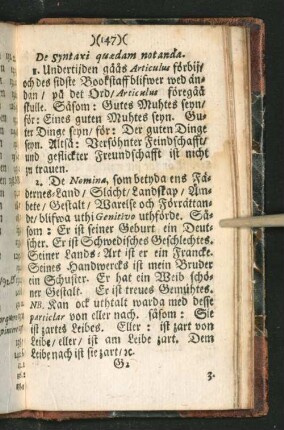 )(147)(
De syntaxi quædam notanda.
1. Undertijden gåås Articulus förbij/
och des sidste Bookstaf blifwer wed än-
dan/ på det Ord/ Articulus föregåå
skulle. Såsom: Gutes Muhtes seyn/
för: Eines guten Muhtes seyn. Gu-
ter Dinge seyn/ för: Der guten Dinge
seyn. Altså: Versöhnter Feindschafft/
und geflickter Freundschafft ist nicht
zu trauen.
2. De Nomina, som betyda ens Fä-
dernes-Land/ Slächt/ Landskap/ Äm-
bete/ Gestalt/ Warelse och Förrättan-
de/ blifwa uthi Genitivo uthförde. Så-
som: Er ist seiner Geburt ein Deut-
scher. Er ist Schwedisches Geschlechtes.
Seiner Lands-Art ist er ein Francke.
Seines Handwercks ist mein Bruder
ein Schuster. Er hat ein Weib schö-
ner Gestalt. Er ist treues Gemühtes.
NB. Kan ock uthtalt warda med desse
particlar von eller nach. såsom: Sie
ist zartes Leibes. Eller: ist zart von
Leibe/ eller/ ist am Leibe zart. Dem
Leibe nach ist sie zart/ ꝛc.
G2
3.